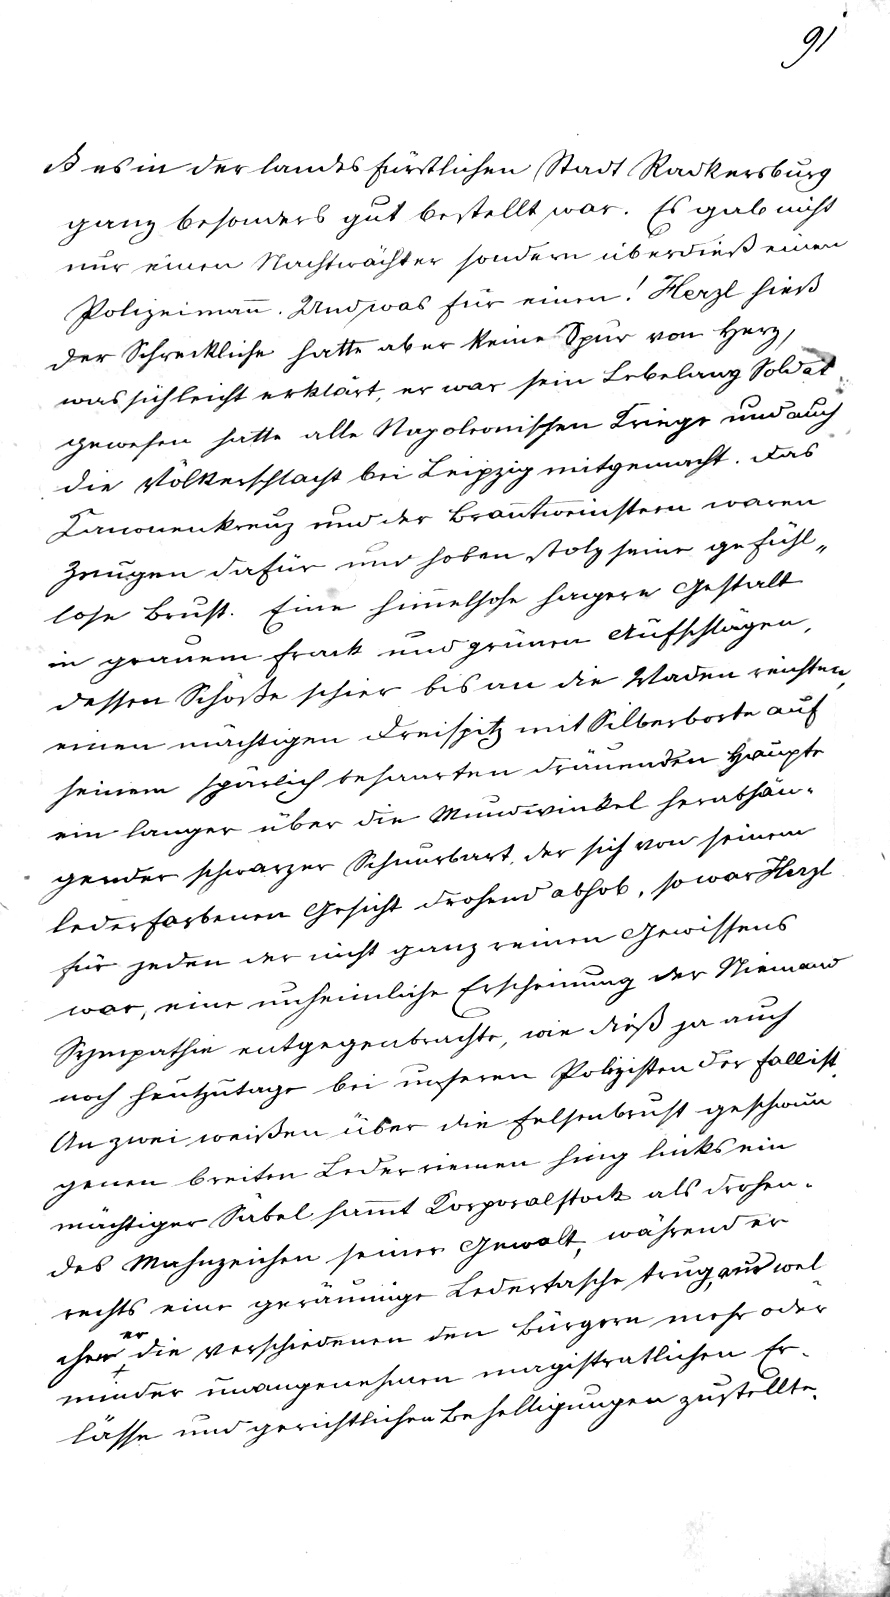 91
ß es in der landesfürstlichen Stadt Radkersburg
ganz besonders gut bestellt war. Es gab nicht
nur einen Nachtwächter sondern überdieß einen
Polizeimann. Und was für einen! Herzl hieß
der Schreckliche hatte aber keine Spur von Herz,
was sich leicht erklärt, er war sein Lebelang Soldat
gewesen hatte alle Napoleonischen Kriege und auch
die Völkerschlacht bei Leipzig mitgemacht. Das
Kanonenkreuz und der Brantweinstern waren
Zeugen dafür und hoben stolz seine gefühl„
lose Brust. Eine himelhohe hagere Gestalt
in grauem Frack und grünen Aufschlägen,
dessen Schöße schier bis an die Waden reichten,
einen mächtigen Dreispitz mit Silberborte auf
seinem spärlich behaarten dräuenden Haupte
ein langer über die Mundwinkel herabhän-
gender schwarzer Schnurbart, der sich von seinem
lederfarbenen Gesicht drohend abhob, so war Herzl
für jeden der nicht ganz reinen Gewissens
war, eine unheimliche Erscheinung der Niemand
Sympathie entgegenbrachte, wie dieß ja auch
noch heutzutage bei unseren Polizisten der Fall ist.
An zwei weißen über die Felsenbrust geschwun
genen breiten Lederriemen hing links ein
mächtiger Säbel samt Korporalstock als drohen-
des Mahnzeichen seiner Gewalt, während er
rechts eine geräumige Ledertasche trug, aus wel
cher er die verschiedenen den Bürgern mehr oder
minder unangenehmen magistratlichen Er-
lässe und gerichtlichen Behelligungen zustellte.